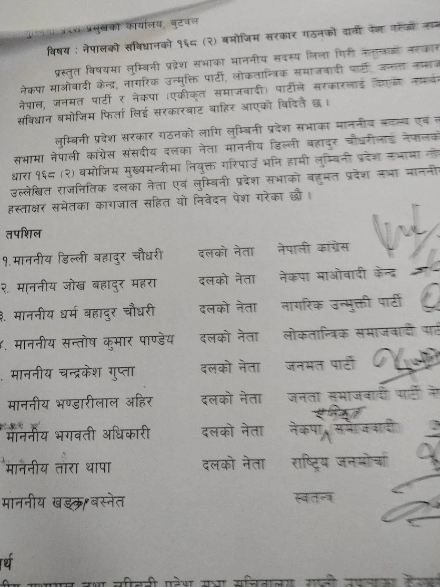 प्रदेश प्रमुखको कार्यालय, बुटवल
विषय : नेपालको संविधानको १६८ (२) बमोजिम सरकार गठनको दावी पेश गरेको
प्रस्तुत विषयमा लुम्बिनी प्रदेश सभाका माननीय सदस्य लिला गिरी नेतृत्वको सरकार
नेकपा माओवादी केन्द्र, नागरिक उन्मुक्ति पार्टी, लोकतान्त्रिक समाजवादी पार्टी, जनता
नेपाल, जनमत पार्टी र नेकपा (एकीकृत समाजवादी) पार्टीले सरकारलाई दिएको
संविधान बमोजिम फिर्ता लिई सरकारबाट बाहिर आएको विदितै छ ।
लुम्बिनी प्रदेश सरकार गठनको लागि लुम्बिनी प्रदेश सभाका माननीय सदस्य एवं
सभामा नेपाली कांग्रेस संसदीय दलका नेता माननीय डिल्ली बहादुर चौधरीलाई नेपालको
धारा १६८ (२) बमोजिम मुख्यमन्त्रीमा नियुक्त गरिपाउँ भनि हामी लुम्बिनी प्रदेश सभामा
उल्लेखित राजनितिक दलका नेता एवं लुम्बिनी प्रदेश सभाको बहुमत प्रदेश सभा
हस्ताक्षर समेतका कागजात सहित यो निवेदन पेश गरेका छौं ।
तपशिल
१.माननीय डिल्ली बहादुर चौधरी दलको नेता नेपाली कांग्रेस
२. माननीय जोख बहादुर महरा दलको नेता नेकपा माओवादी केन्द्र
३. माननीय धर्म बहादुर चौधरी दलको नेता नागरिक उन्मुक्ती पार्टी
४. माननीय सन्तोष कुमार पाण्डेय दलको नेता लोकतान्त्रिक समाजवादी
माननीय चन्द्रकेश गुप्ता दलको नेता जनमत पार्टी
माननीय भण्डारीलाल अहिर दलको नेता जनता समाजवादी पार्टी
माननीय भगवती अधिकारी दलको नेता नेकपा एकिकृत समाजवादी
माननीय तारा थापा दलको नेता राष्ट्रिय जनमोर्चा
माननीय खड्क बस्नेत स्वतन्त्र